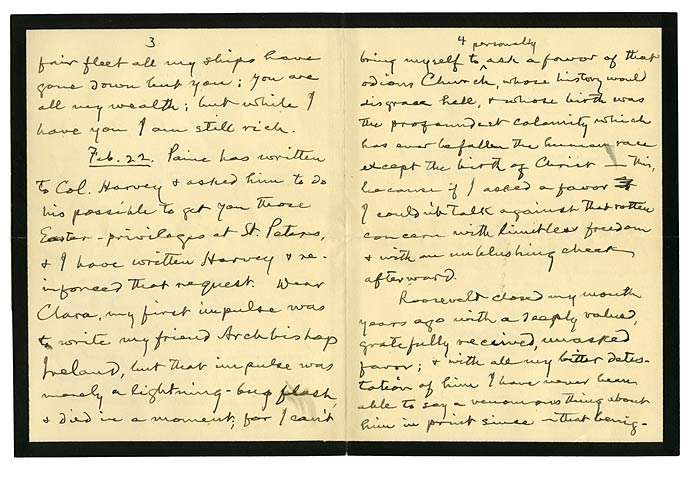 3
fair fleet all my ships have
gone down but you; you are
all my wealth; but while I
have you I am still rich.
Feb. 22. Paine has written
to Col. Harvey & asked him to do
his possible to get you those
Easter-privileges at St. Peters,
& I have written Harvey & re-
inforced that request. Dear
Clara, my first impulse was
to write my friend Archbishop
Ireland, but that impulse was
merely a lightning-bug flash,
& died in a moment; for I can't
4
personally
bring myself to ^ ask a favor of that
odious Church, whose history would
disgrace hell, & whose birth was
the profoundest calamity which
has ever befallen the human race
except the birth of Christ — this,
because if I asked a favor
I couldn't talk against that rotten
concern with limitless freedom
& with an unblushing cheek
afterward.
Roosevelt closed my mouth
years ago with a deeply valued,
gratefully received, unasked
favor; & with all my bitter detes-
tation of him I have never been
able to say a venomous thing about
him in print since — that benig-